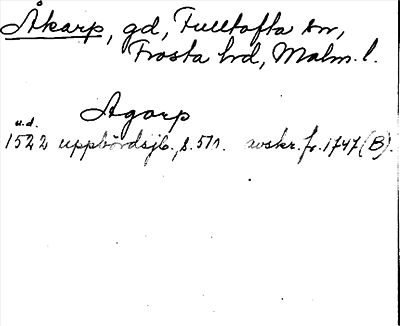 Åkarp, gd, Fulltofta sn,
Frosta hd, Malm. l.
Agarp
u.d.
1522 uppbördsjb. s. 511. avskr. fr. 1747 (B).